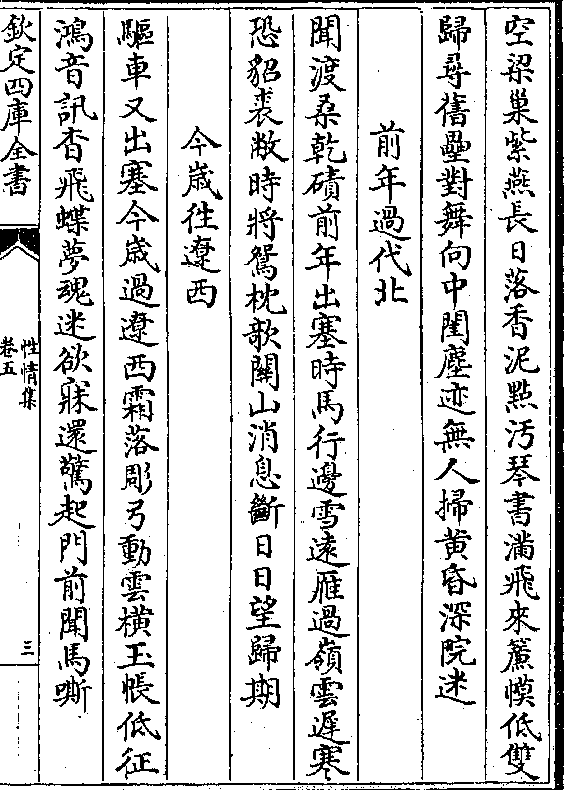 空梁巢紫燕長日落香泥㸃汚琴書滿飛來簾幙低雙
歸尋舊壘對舞向中閨塵迹無人掃黄昏深院迷
前年過代北
聞渡桑乾磧前年出塞時馬行邊雪逺雁過嶺雲遲寒
恐貂裘敝時將鴛枕欹關山消息斷日日望歸期
今歲往遼西
驅車又出塞今歲過遼西霜落彫弓動雲橫玉帳低征
鴻音訊杳飛蝶夢魂迷欲寐還驚起門前聞馬嘶
欽定四庫全書
性情集
卷五
三